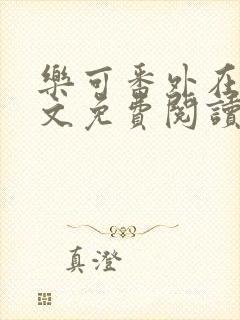 樂可番外在
文免費閱讀
真澄